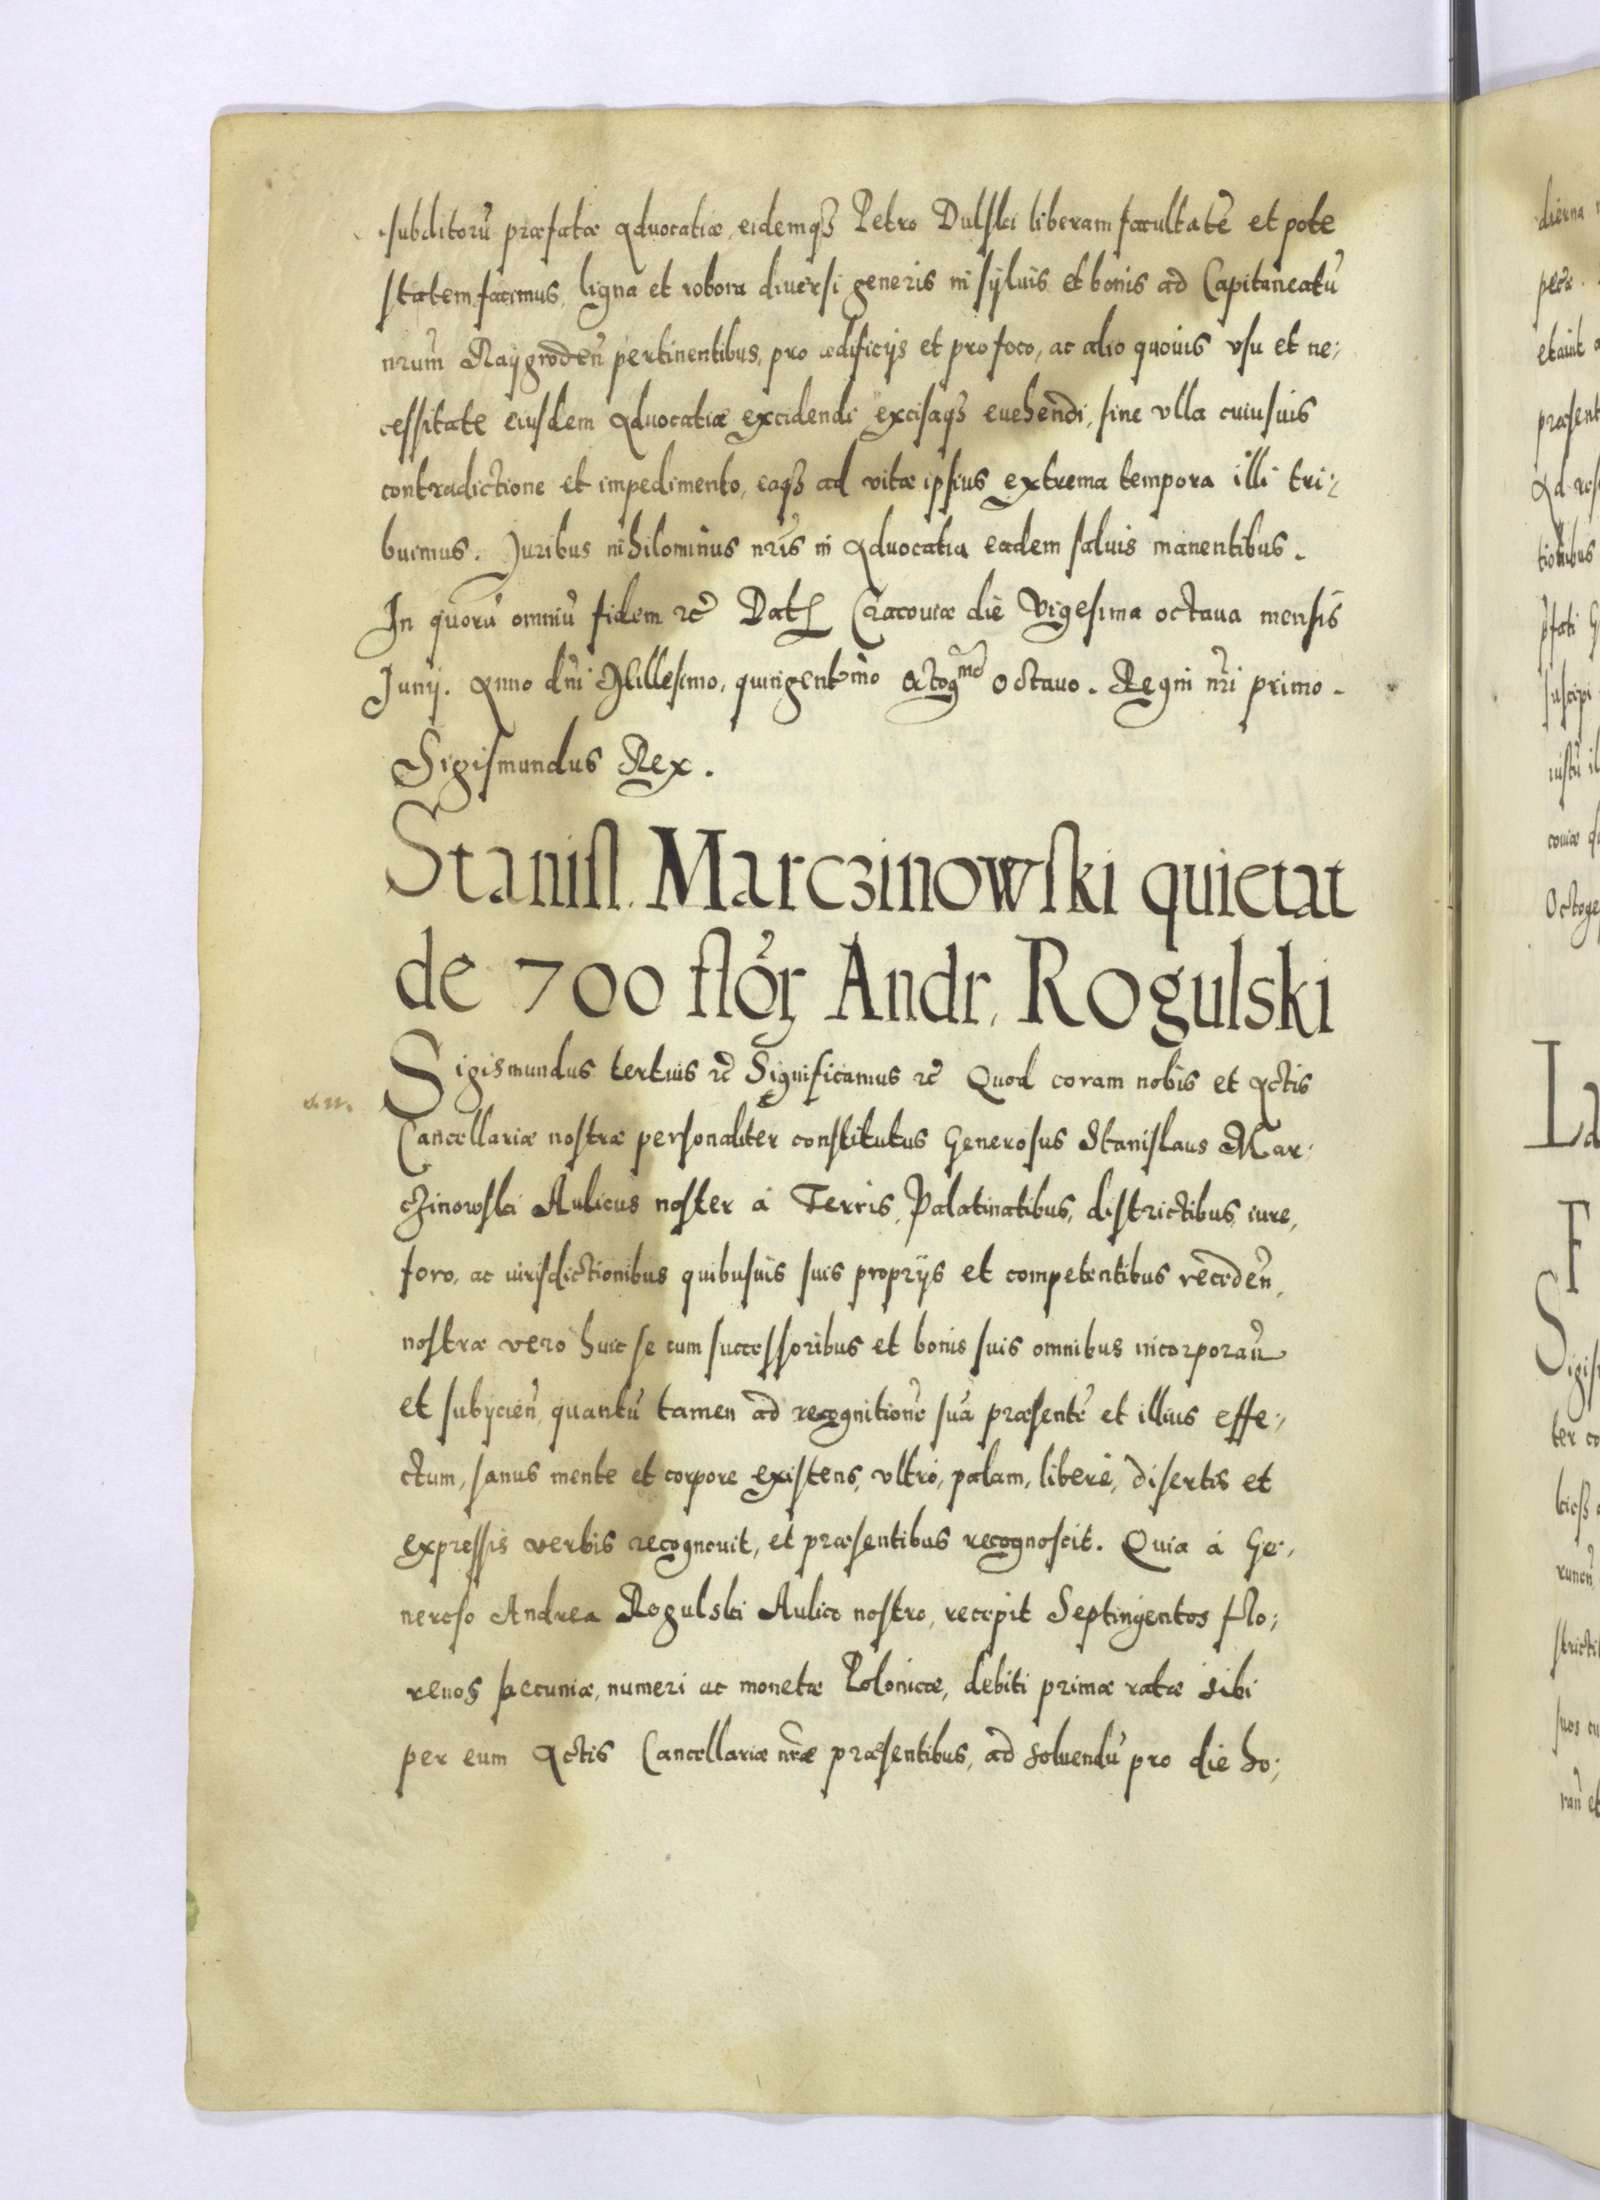 subditorū præfatæ Aduocatiæ, eidemqȝ Petro Dulski liberam facultatē et pote
statem facimus, ligna et robora diuersi generis in syluis et bonis ad Capitaneatū
nrum̄ Raygroden̄ pertinentibus, pro ædificijs et pro foco, ac alio quouis vsu et ne:
cessitate eiusdem Aduocatiæ excidendi excisaqȝ euehendi, sine vlla cuiusuis
contradictione et impedimento, eaqȝ ad vitæ ipsius extrema tempora illi tri:
buimus. Juribus nihilominus nr̄is in Aduocatia eadem saluis manentibus.
In quorū omniū fidem etc̄ Dat Cracouiæ die Vigesima octaua mensis
Junij. Anno dn̄i Millesimo, quingentmo Octogmo octauo. Regni nr̄i primo.
Sigismundus Rex.
Stanisl. Marczinowski quietat
de 700 flor̄ Andr. Rogulski
Sigismundus tertius etc̄ Significamus etc̄ Quod coram nobis et Actis
Cancellariæ nostræ personaliter constitutus Generosus Stanislaus Mar:
czinowski Aulicus noster à Terris, Palatinatibus, districtibus, iure,
foro, ac iurisdictionibus quibusuis suis proprijs et competentibus receden̄,
nostræ vero huic se cum successoribus et bonis suis omnibus incorporan̄
et subijcien̄, quantū tamen ad recognitionē suā præsentē et illius effe:
ctum, sanus mente et corpore existens, vltrò, palam, liberè, disertis et
expressis verbis recognouit, et præsentibus recognoscit. Quia à Ge:
neroso Andrea Rogulski Aulico nostro, recepit Septingentos flo:
renos pecuniæ, numeri ac monetæ Polonicæ, debiti primæ ratæ sibi
per eum Actis Cancellariæ nr̄æ præsentibus, ad soluendū pro die ho: